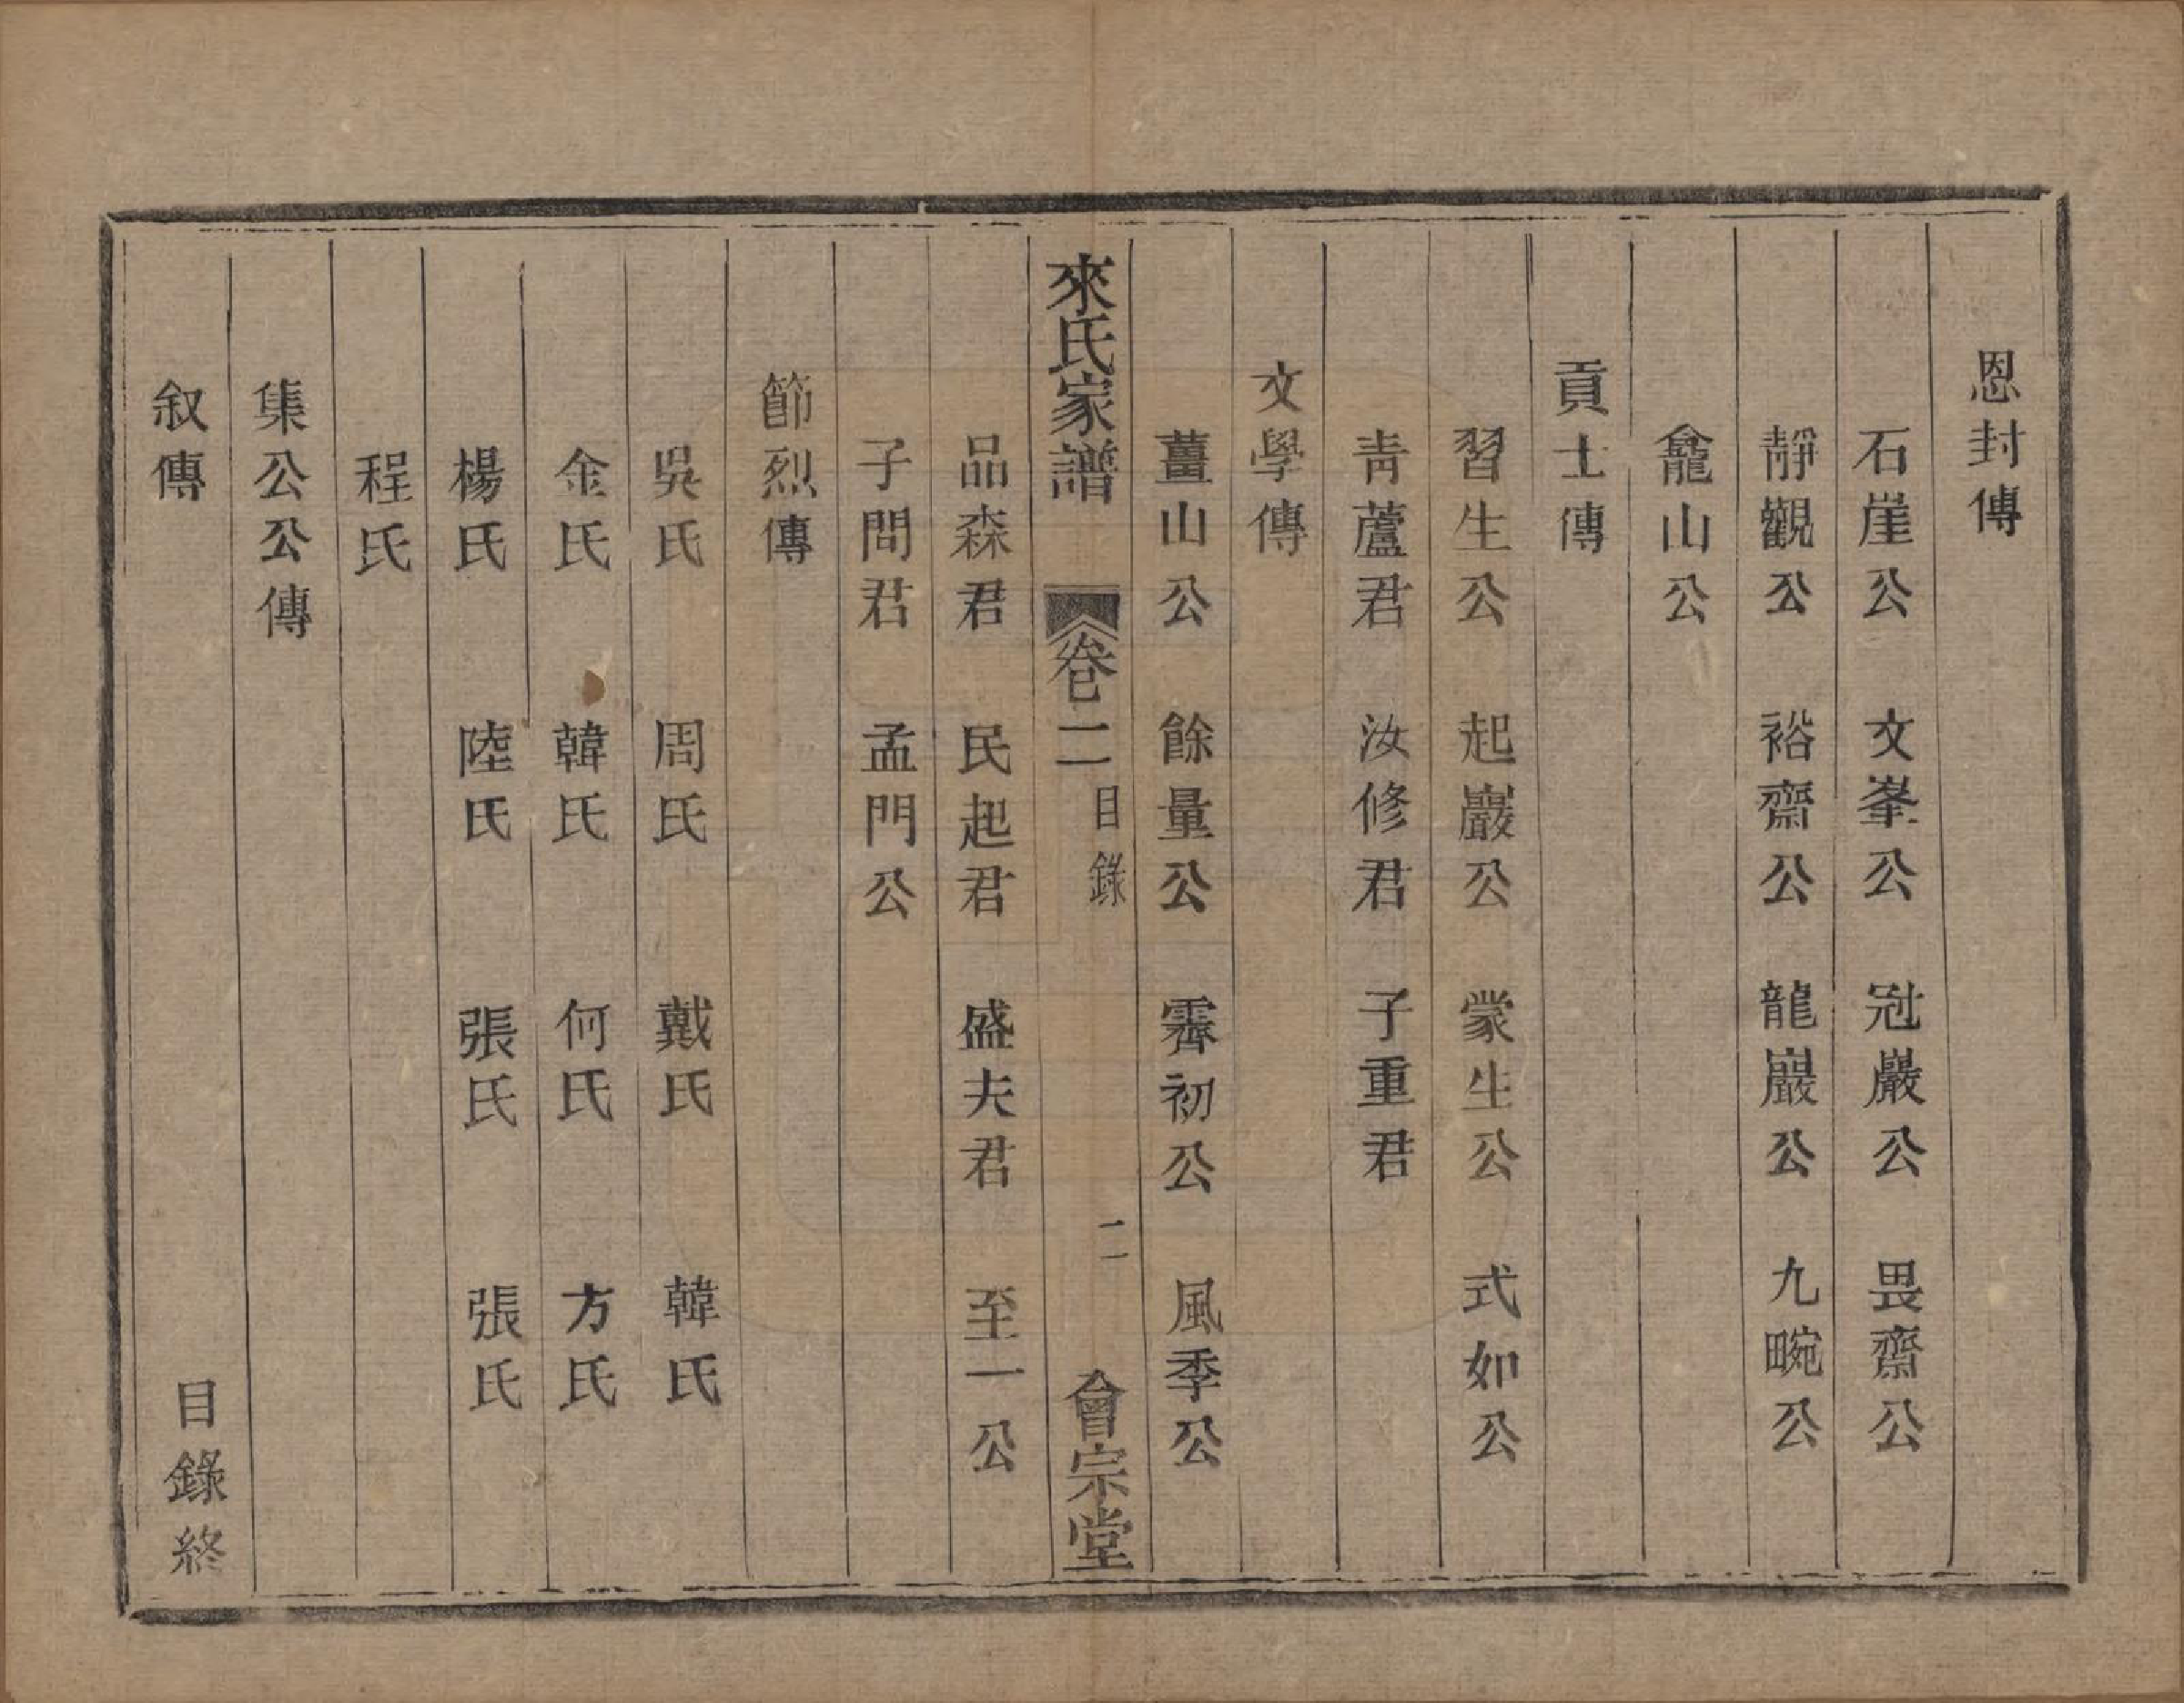 恩封傳
石崖公　文峯公　冠巖公　畏齋公
靜觀公　裕齋公　龍巖公　九畹公
龕山公
貢士傳
習生公　起巖公　蒙生公　式如公
青蘆君　汝修君　子重君
文學傳
薑山公　餘量公　霽初公　風季公
來氏家譜　卷二　目錄　二　會宗堂
品森君　民起君　盛夫君　至一公
子問君　孟門公
節烈傳
吳氏　周氏　戴氏　韓氏
金氏　韓氏　何氏　方氏
楊氏　陸氏　張氏　張氏
程氏
集公公傳
叙傳　目錄終